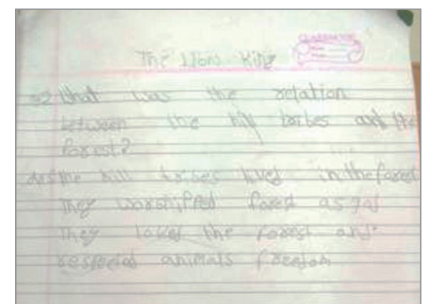 The Lion King
Q2 What was the relation
between the hill tribes and the
forest?
Ans The hill tribes lived in the forest
They worshipped forest as god
They loved the forest and
respected animals freedom